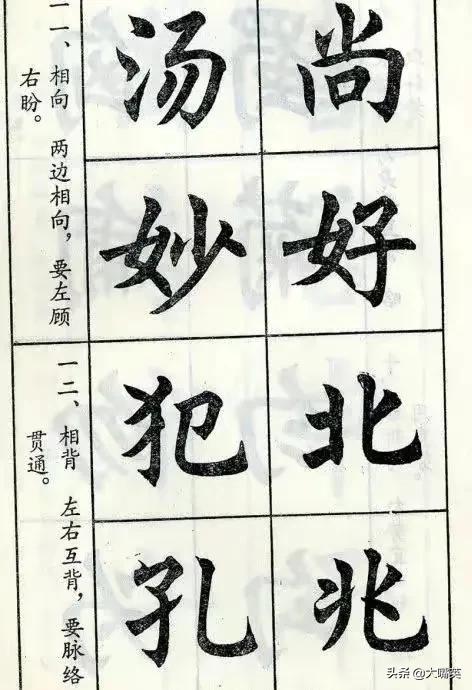 一一、相向 两边相向，要左顾
右盼。
汤 尚
妙 好
一二、相背 左右互背，要脉络
贯通。
犯 北
孔 兆
头条 @大嘴英